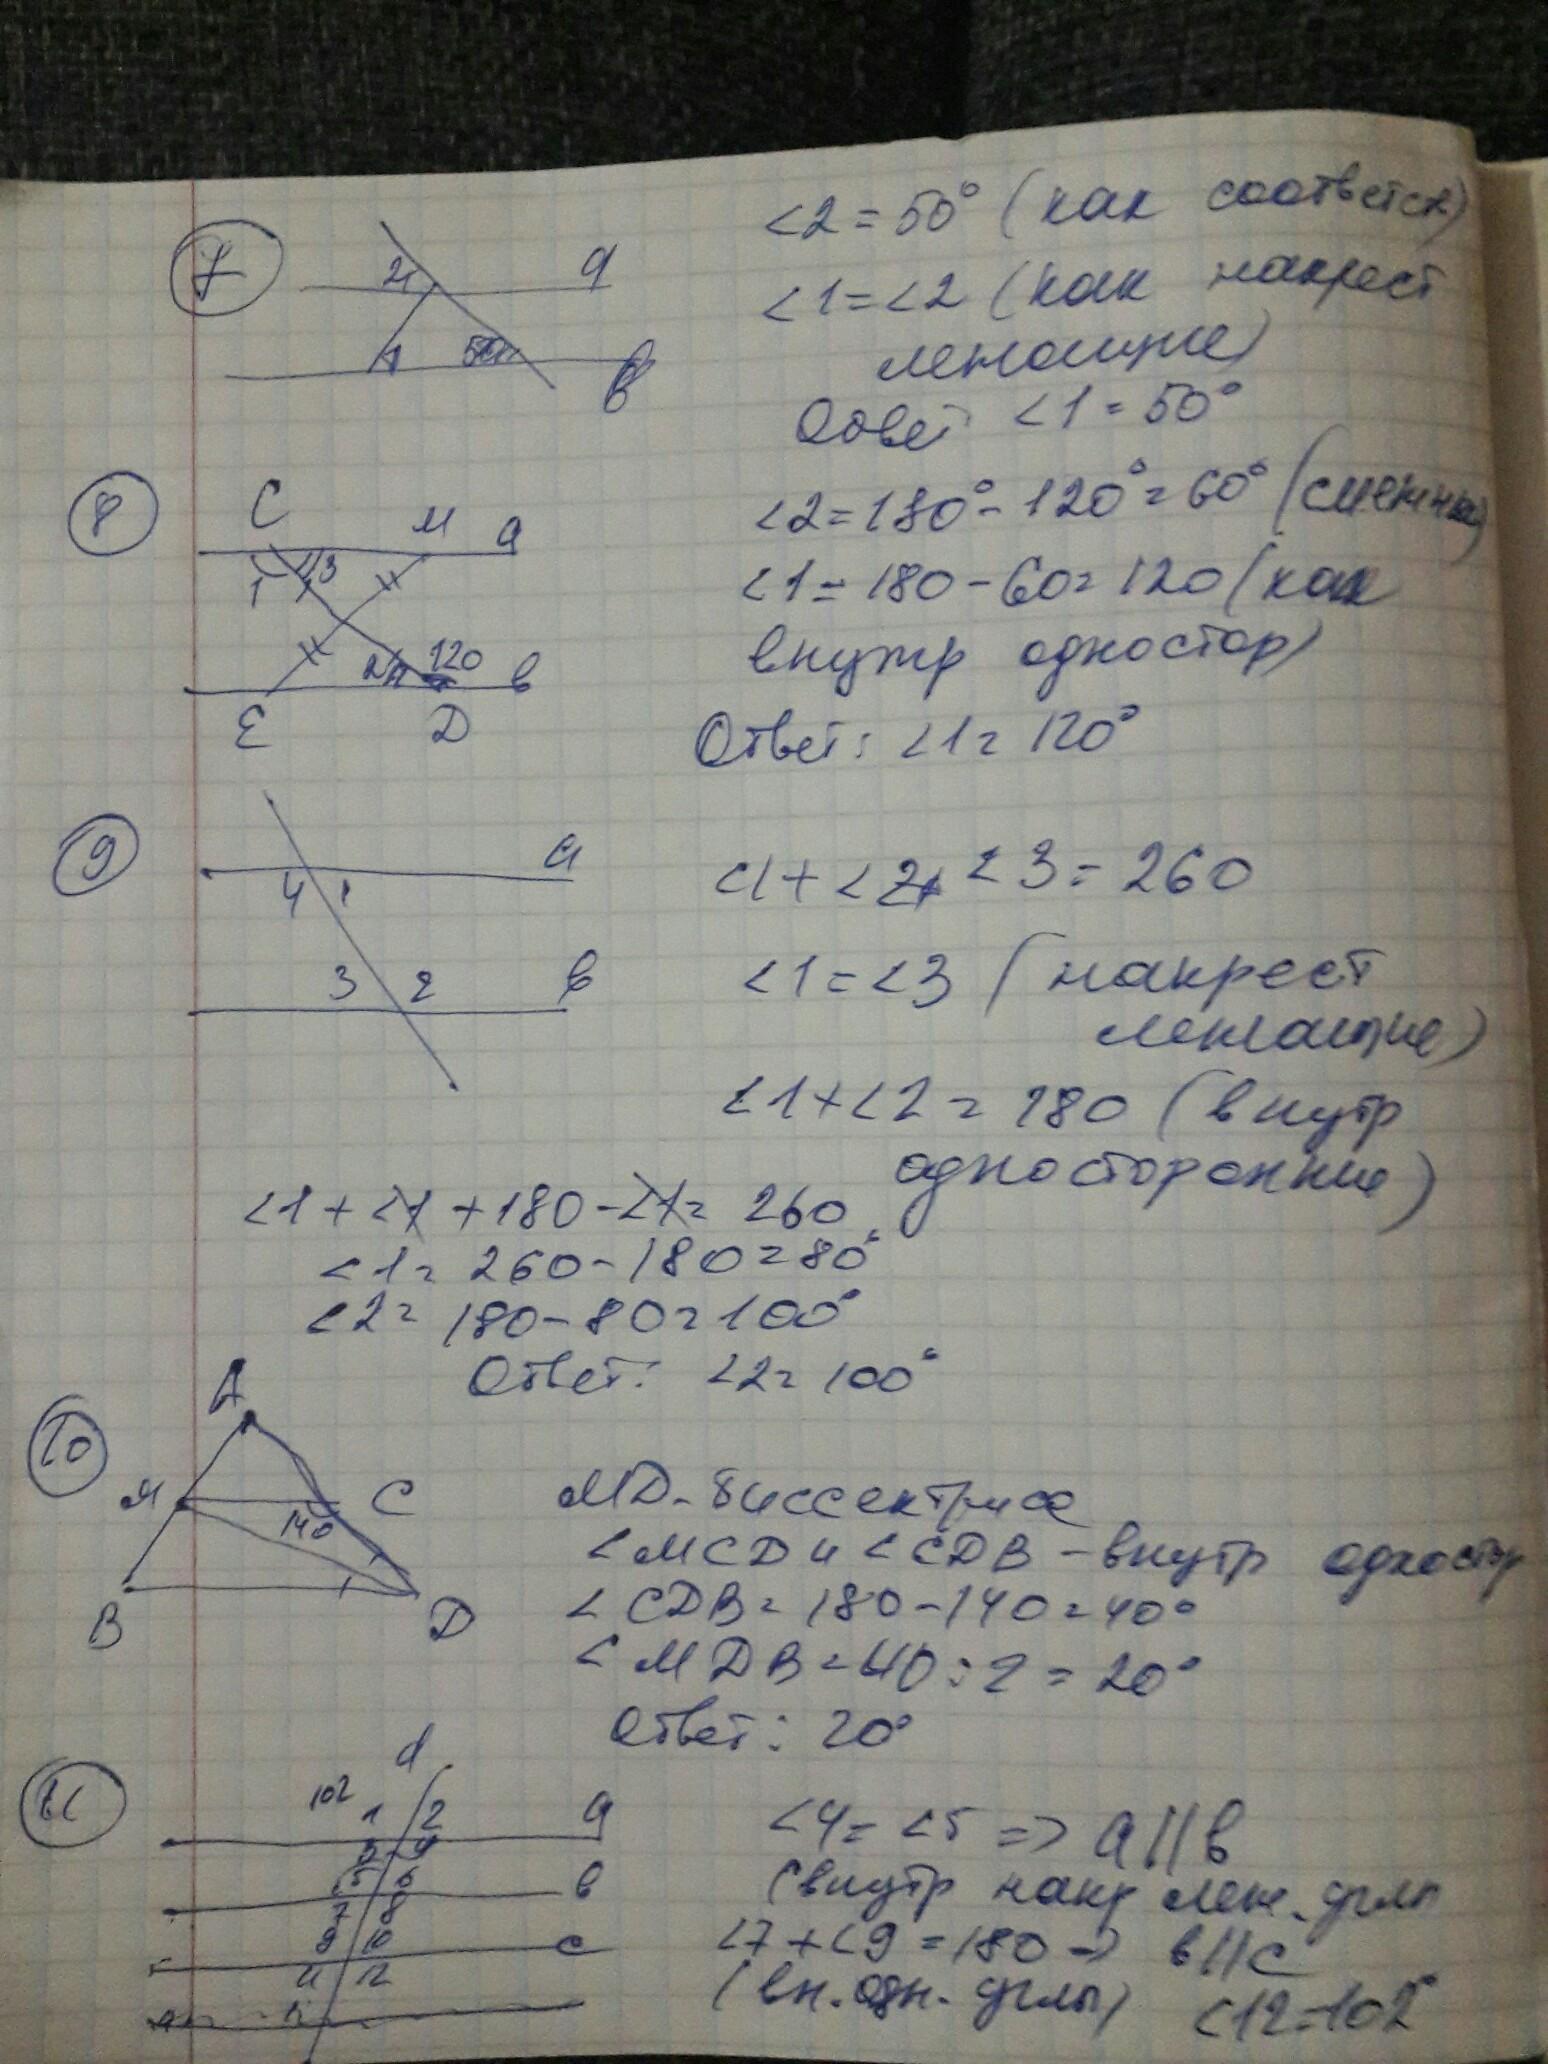 7
2
a
1
50
в
∠2 = 50° (как соответств)
∠1 = ∠2 (как накрест
лежащие)
Ответ ∠1 = 50°
8
C M a
1 3
2 120 в
E D
∠2 = 180° - 120° = 60° (смежные)
∠1 = 180 - 60 = 120 (как
внутр одностор)
Ответ: ∠1 = 120°
9
a
4 1
3 2 в
∠1 + ∠2 + ∠3 = 260
∠1 = ∠3 (накрест
лежащие)
∠1 + ∠2 = 180 (внутр
односторонние)
∠1 + ∠1 + 180 - ∠1 = 260
∠1 = 260 - 180 = 80°
∠2 = 180 - 80 = 100°
Ответ: ∠2 = 100°
10
A
M C
140
B D
MD - биссектриса
∠MCD и ∠CDB - внутр одностор
∠CDB = 180 - 140 = 40°
∠MDB = 40 : 2 = 20°
Ответ: 20°
11
d
102
1 2 a
3 4
5 6 в
7 8
9 10 c
11 12
∠4 = ∠5 => a || в
(внутр накр леж. углы
∠7 + ∠9 = 180 => в || c
(вн. одн. углы) ∠12 = 102°